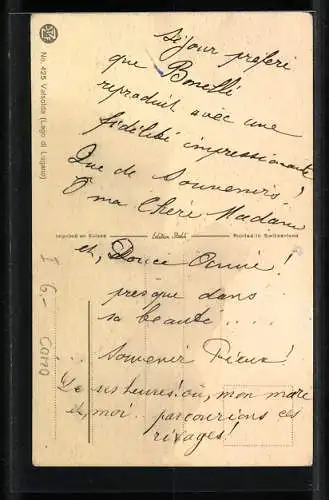 séjour préféré
que Bonelli
reproduit avec une
fidélité impressionnante
Que de Souvenirs!
O ma Chère Madame
et, Douce Amie!
presque dans
sa beauté....
Souvenir Pieux!
De ses heures! où, mon
et, moi parcourions ces
rivages!
No. 425 Valsolda (Lago di Lugano)
Imprimé en Suisse
Printed in Switzerland
I
6.-